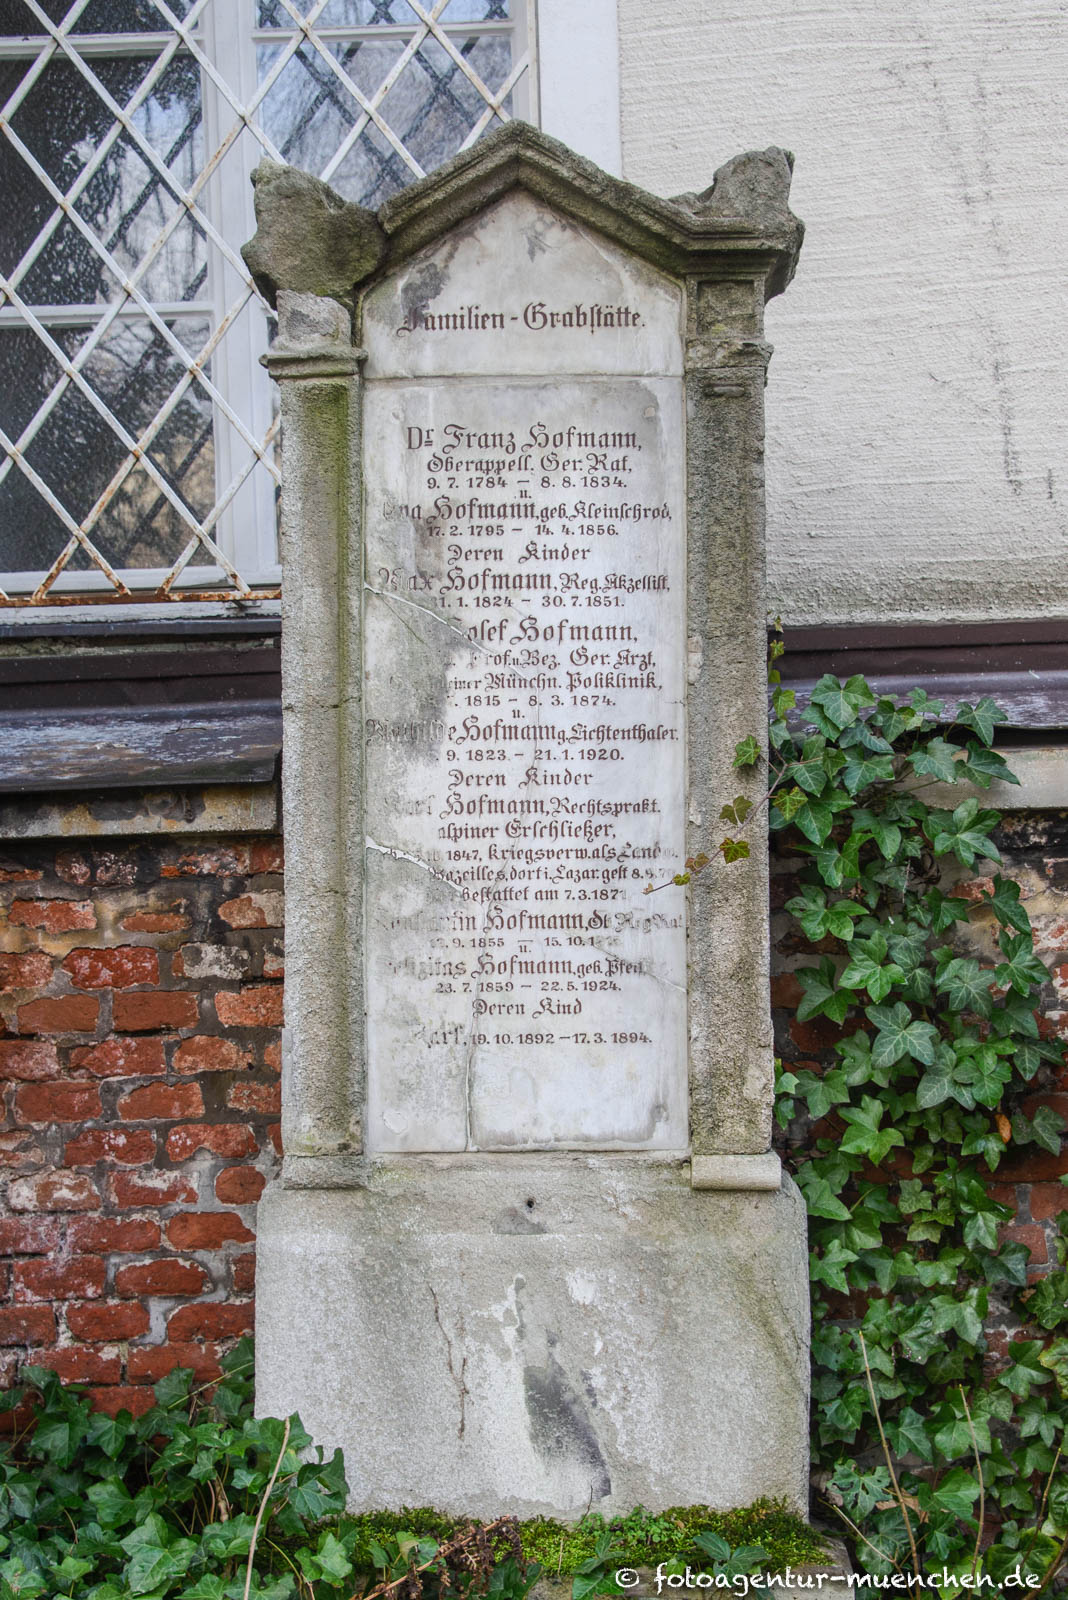 Familien-Grabstätte.
Dr. Franz Hofmann,
Oberappell. Ger. Rat,
9. 7. 1784 – 8. 8. 1834.
u.
Hofmann, geb. Kleinschrod,
17. 2. 1795 – 14. 4. 1856.
Deren Kinder
Max Hofmann, Reg. Akzessist,
1. 1824 – 30. 7. 1851.
Josef Hofmann,
Prof. u. Bez. Ger. Arzt,
Münchn. Poliklinik,
1815 – 8. 3. 1874.
u.
Hofmann g. Lichtenthaler.
9. 1823 – 21. 1. 1920.
Deren Kinder
Karl Hofmann, Rechtsprakt.
alpiner Erschließer,
1847, Kriegsverw. als
Bazeilles, dort i. Lazar. gest
bestattet am 7. 3. 1871
Hofmann,
9. 1855 – 15. 10.
u.
Hofmann, geb.
23. 7. 1859 – 22. 5. 1924.
Deren Kind
Karl, 19. 10. 1892 – 17. 3. 1894.
© fotoagentur-muenchen.de